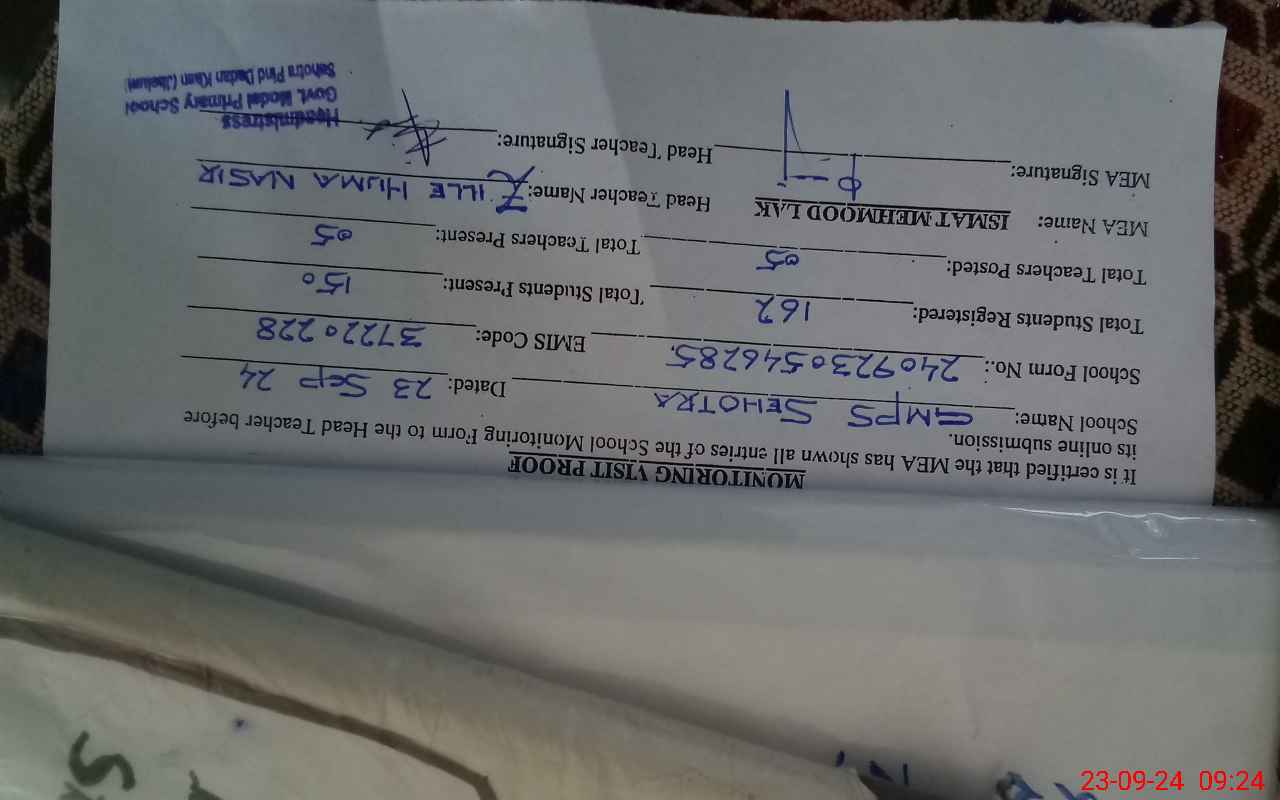 MONITORING VISIT PROOF
It is certified that the MEA has shown all entries of the School Monitoring Form to the Head Teacher before
its online submission.
School Name: GMPS SEHOTRA Dated: 23 SEP 24
School Form No.: 2409230546285. EMIS Code: 37220228
Total Students Registered: 162 Total Students Present: 150
Total Teachers Posted: 05 Total Teachers Present: 05
MEA Name: ISMAT MEHMOOD LAK Head Teacher Name: ZILLE HUMA NASIR
MEA Signature: Head Teacher Signature:
Headmistress
Govt. Model Primary School
Sehotra Pind Dadan Khan (Jhelum)
23-09-24 09:24